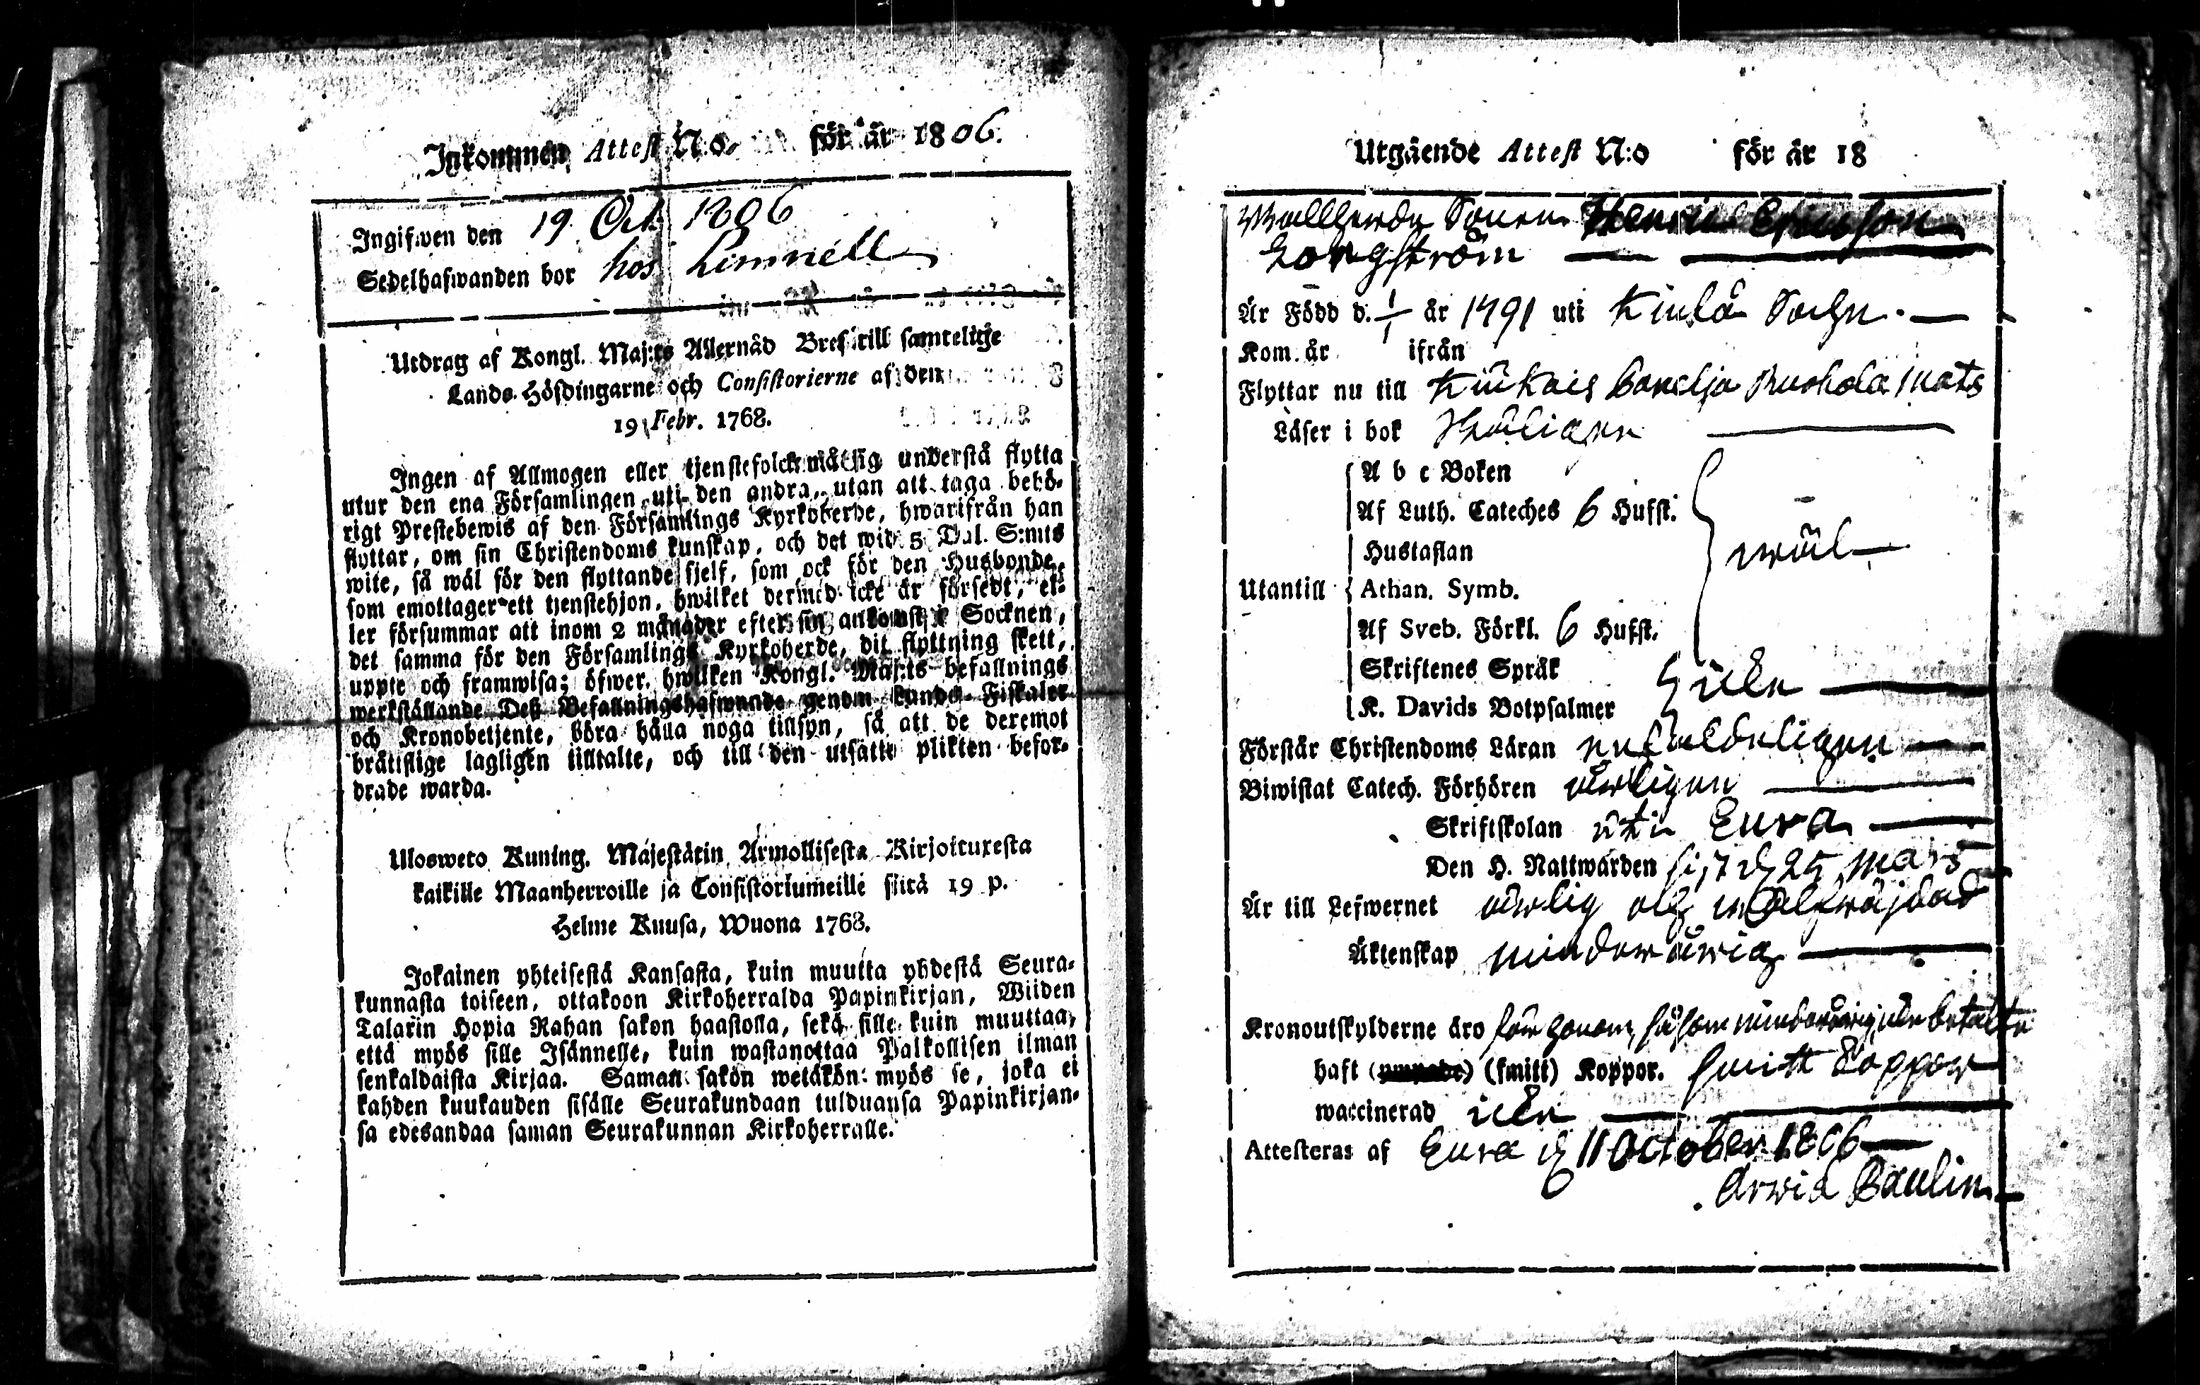 Inkommen Attest N:o för år 1806.
Ingifwen den 19 Oct. 1806
Sedelhafwanden bor hos Limnell
Utdrag af Kongl. Maj:ts Allernåd Bref till samtelitje
Lands-Höfdingarne och Consistorierne af den
19 Febr. 1768.
Ingen af Allmogen eller tjenstefolck må sig understå flytta
utur den ena Församlingen uti den andra, utan att taga behö-
rigt Prestebewis af den Församlings Kyrkoherde, hwarifrån han
flyttar, om sin Christendoms kunskap, och det wid 5 Dal. S:mts
wite, så wäl för den flyttande sjelf, som ock för den Husbonde,
som emottager ett tjenstehjon, hwilket dermed icke är försedt, el-
ler försummar att inom 2 månader efter sin ankomst i Socknen,
det samma för den Församlings Kyrkoherde, dit flyttning skett,
uppte och framwisa; öfwer hwilken Kongl. Maj:ts befallnings
werkställande Deß Befallningshafwande genom Lands-Fiskaler
och Kronobetjente, böra hålla noga tillsyn, så att de deremot
bråttslige lagligen tilltalte, och till den utsatte plikten befor-
drade warda.
Ulosweto Kuning. Majestätin Armollisesta Kirjoituxesta
kaikille Maanherroille ja Consistoriumeille siitä 19 p.
Helme Kuusa, Wuona 1768.
Jokainen yhteisestä Kansasta, kuin muutta yhdestä Seura-
kunnasta toiseen, ottakoon Kirkoherralda Papinkirjan, Wiiden
Talarin Hopia Rahan sakon haastolla, sekä sille kuin muuttaa,
että myös sille Isännelle, kuin wastanottaa Palkollisen ilman
senkaldaista Kirjaa. Saman sakon wetäkön myös se, joka ei
kahden kuukauden sisälle Seurakundaan tulduansa Papinkirjan-
sa edesandaa saman Seurakunnan Kirkoherralle.
Utgående Attest N:o för år 18
Sonen Henric Ericsson
Borgström
Är Född d. 1/1 år 1791 uti Kiulo Sochn.
Kom år ifrån
Flyttar nu till Mats
Läser i bok
A b c Boken
Af Luth. Cateches 6 Hufst.
Hustaflan
wäl
Utantill Athan. Symb.
Af Sveb. Förkl. 6 Hufst.
Skriftenes Språk
K. Davids Botpsalmer icke
Förstår Christendoms Läran enfaldeligen
Biwistat Catech. Förhören årligen
Skriftskolan uti Eura
Den H. Nattwarden d. 25 Mars
Är till Lefwernet ärlig och wälfräjdad
Äktenskap minderårig
Kronoutskylderne äro såsom minderårig icke betalte
haft (smitt) Koppor. smitt koppor
waccinerad icke
Attesteras af Eura d. 11 October 1806
Arwid Paulin